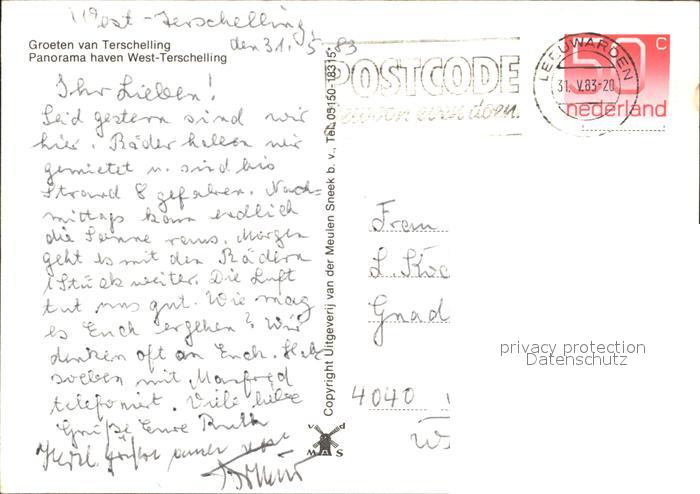 West-Terschelling,
den 31. 5. 83
Groeten van Terschelling
Panorama haven West-Terschelling
Ihr Lieben!
Seid gestern sind wir
hier. Räder haben wir
gemietet u. sind bis
Strand 8 gefahren. Nach-
mittags kam endlich
die Sonne raus. Morgen
geht es mit den Rädern
1 Stück weiter. Die Luft
tut uns gut. Wie mag
es Euch ergehen? Wir
denken oft an Euch. Hab
soeben mit Manfred
telefoniert. Viele liebe
Grüße Eure Ruth
Copyright Uitgeverij van der Meulen Sneek b. v., Tel. 05150-18315*
v d
MAS
POSTCODE
gewoon even doen.
LEEUWARDEN
31. V.83-20
50 C
nederland
Gnad
4040
privacy protection
Datenschutz